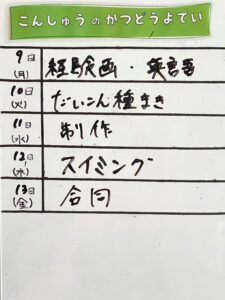 こんしゅうのかつどうよてい
9日(月) 経験画・英言語
10日(火) だいこん種まき
11日(水) 制作
12日(木) スイミング
13日(金) 合同